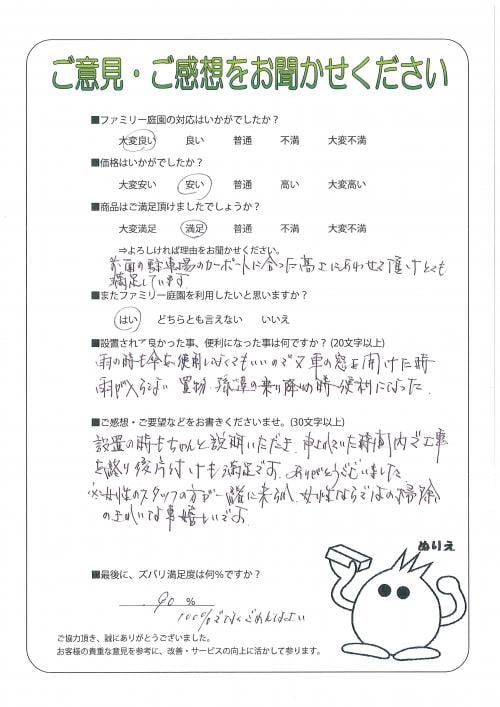 ご意見・ご感想をお聞かせください
■ファミリー庭園の対応はいかがでしたか?
大変良い 良い 普通 不満 大変不満
■価格はいかがでしたか?
大変安い 安い 普通 高い 大変高い
■商品はご満足頂けましたでしょうか?
大変満足 満足 普通 不満 大変不満
⇒よろしければ理由をお聞かせください。
前面の駐車場のカーポートに合った高さにあわせて頂けとても
満足しています
■またファミリー庭園を利用したいと思いますか?
はい どちらとも言えない いいえ
■設置されて良かった事、便利になった事は何ですか?(20文字以上)
雨の時も傘を使用しなくてもいいので又車の窓を開けた時
雨が入らない 置物 孫達の乗り降りの時便利になった
■ご感想・ご要望などをお書きくださいませ。(30文字以上)
設置の時もちゃんと説明いただき、申されていた時間内で工事
を終り後片付けも満足です。ありがとうございました
※女性のスタッフの方が一緒に来られ、女性ならではの掃除
のきれいな事嬉しいです
ぬりえ
■最後に、ズバリ満足度は何%ですか?
90 %
100%でなくごめんなさい
ご協力頂き、誠にありがとうございました。
お客様の貴重な意見を参考に、改善・サービスの向上に活かして参ります。